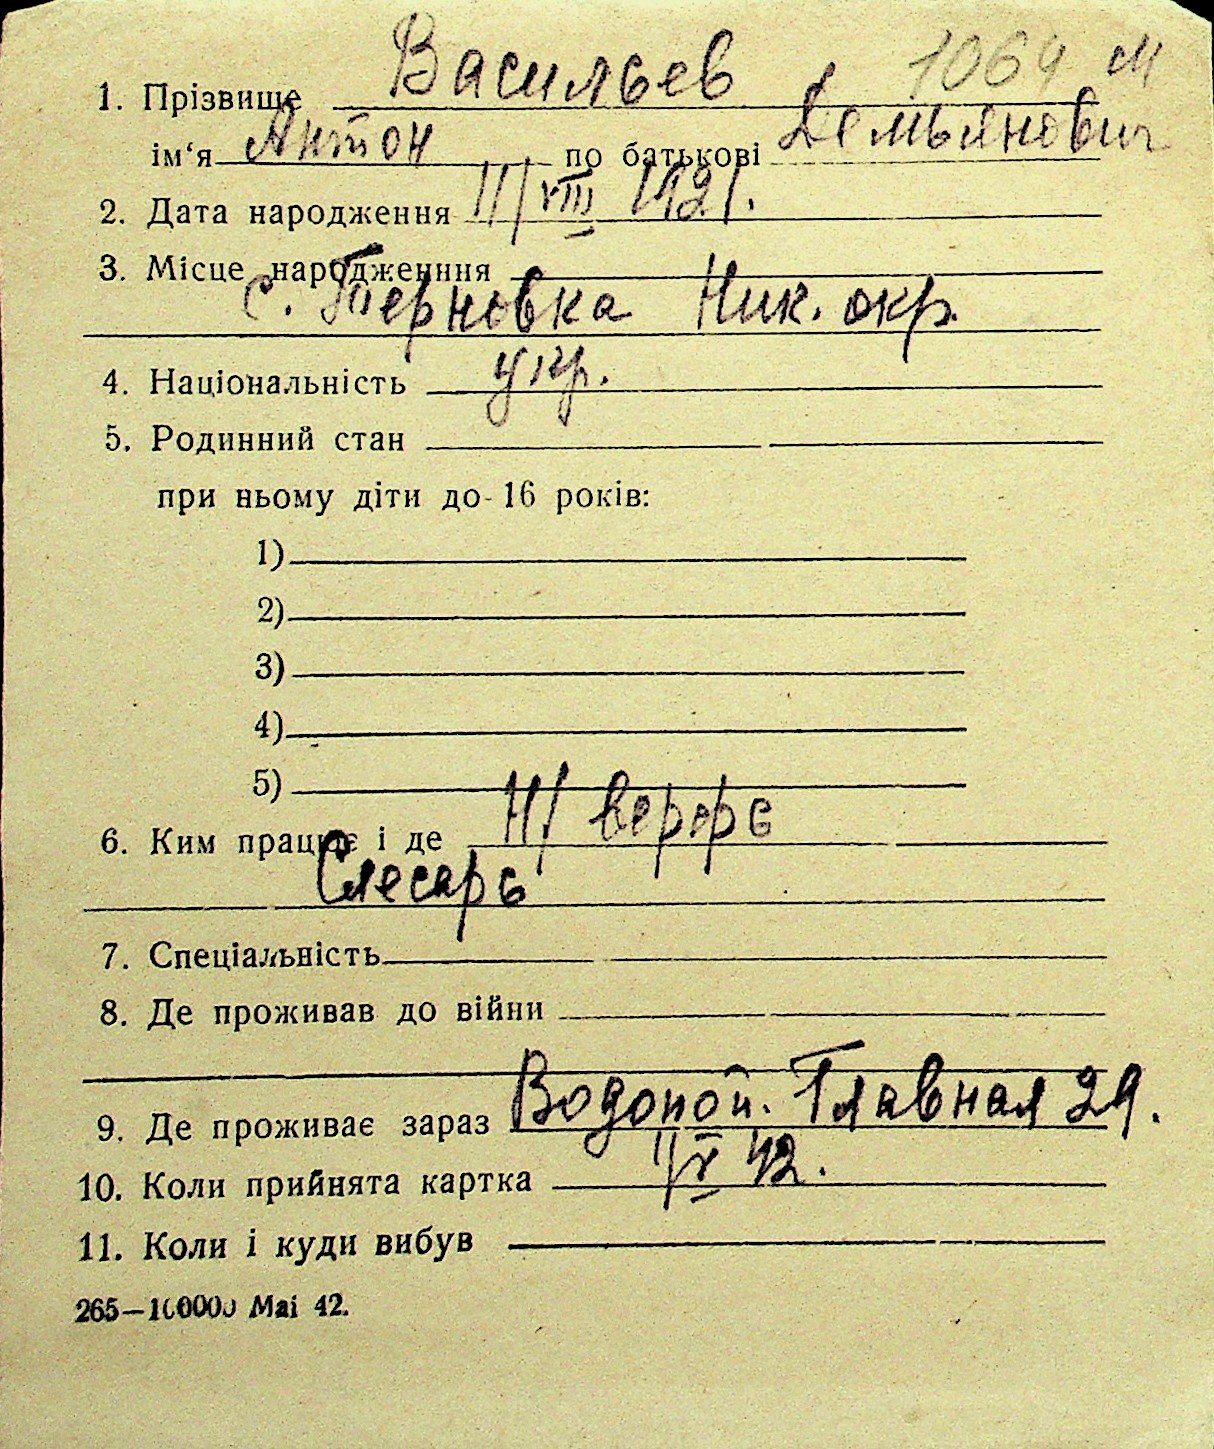 1064 м
1. Прізвище Васильев
ім‘я Антон по батькові Демьянович
2. Дата народження 11/VIII 1921.
3. Місце народженння
с. Терновка Ник. окр.
4. Національність укр.
5. Родинний стан
при ньому діти до 16 років:
1)
2)
3)
4)
5)
6. Ким працює і де Н/ верфь
Слесарь
7. Спеціальність
8. Де проживав до війни
9. Де проживає зараз Водопой. Главная 29.
10. Коли прийнята картка 11/V 42.
11. Коли і куди вибув
265—100000 Mai 42.